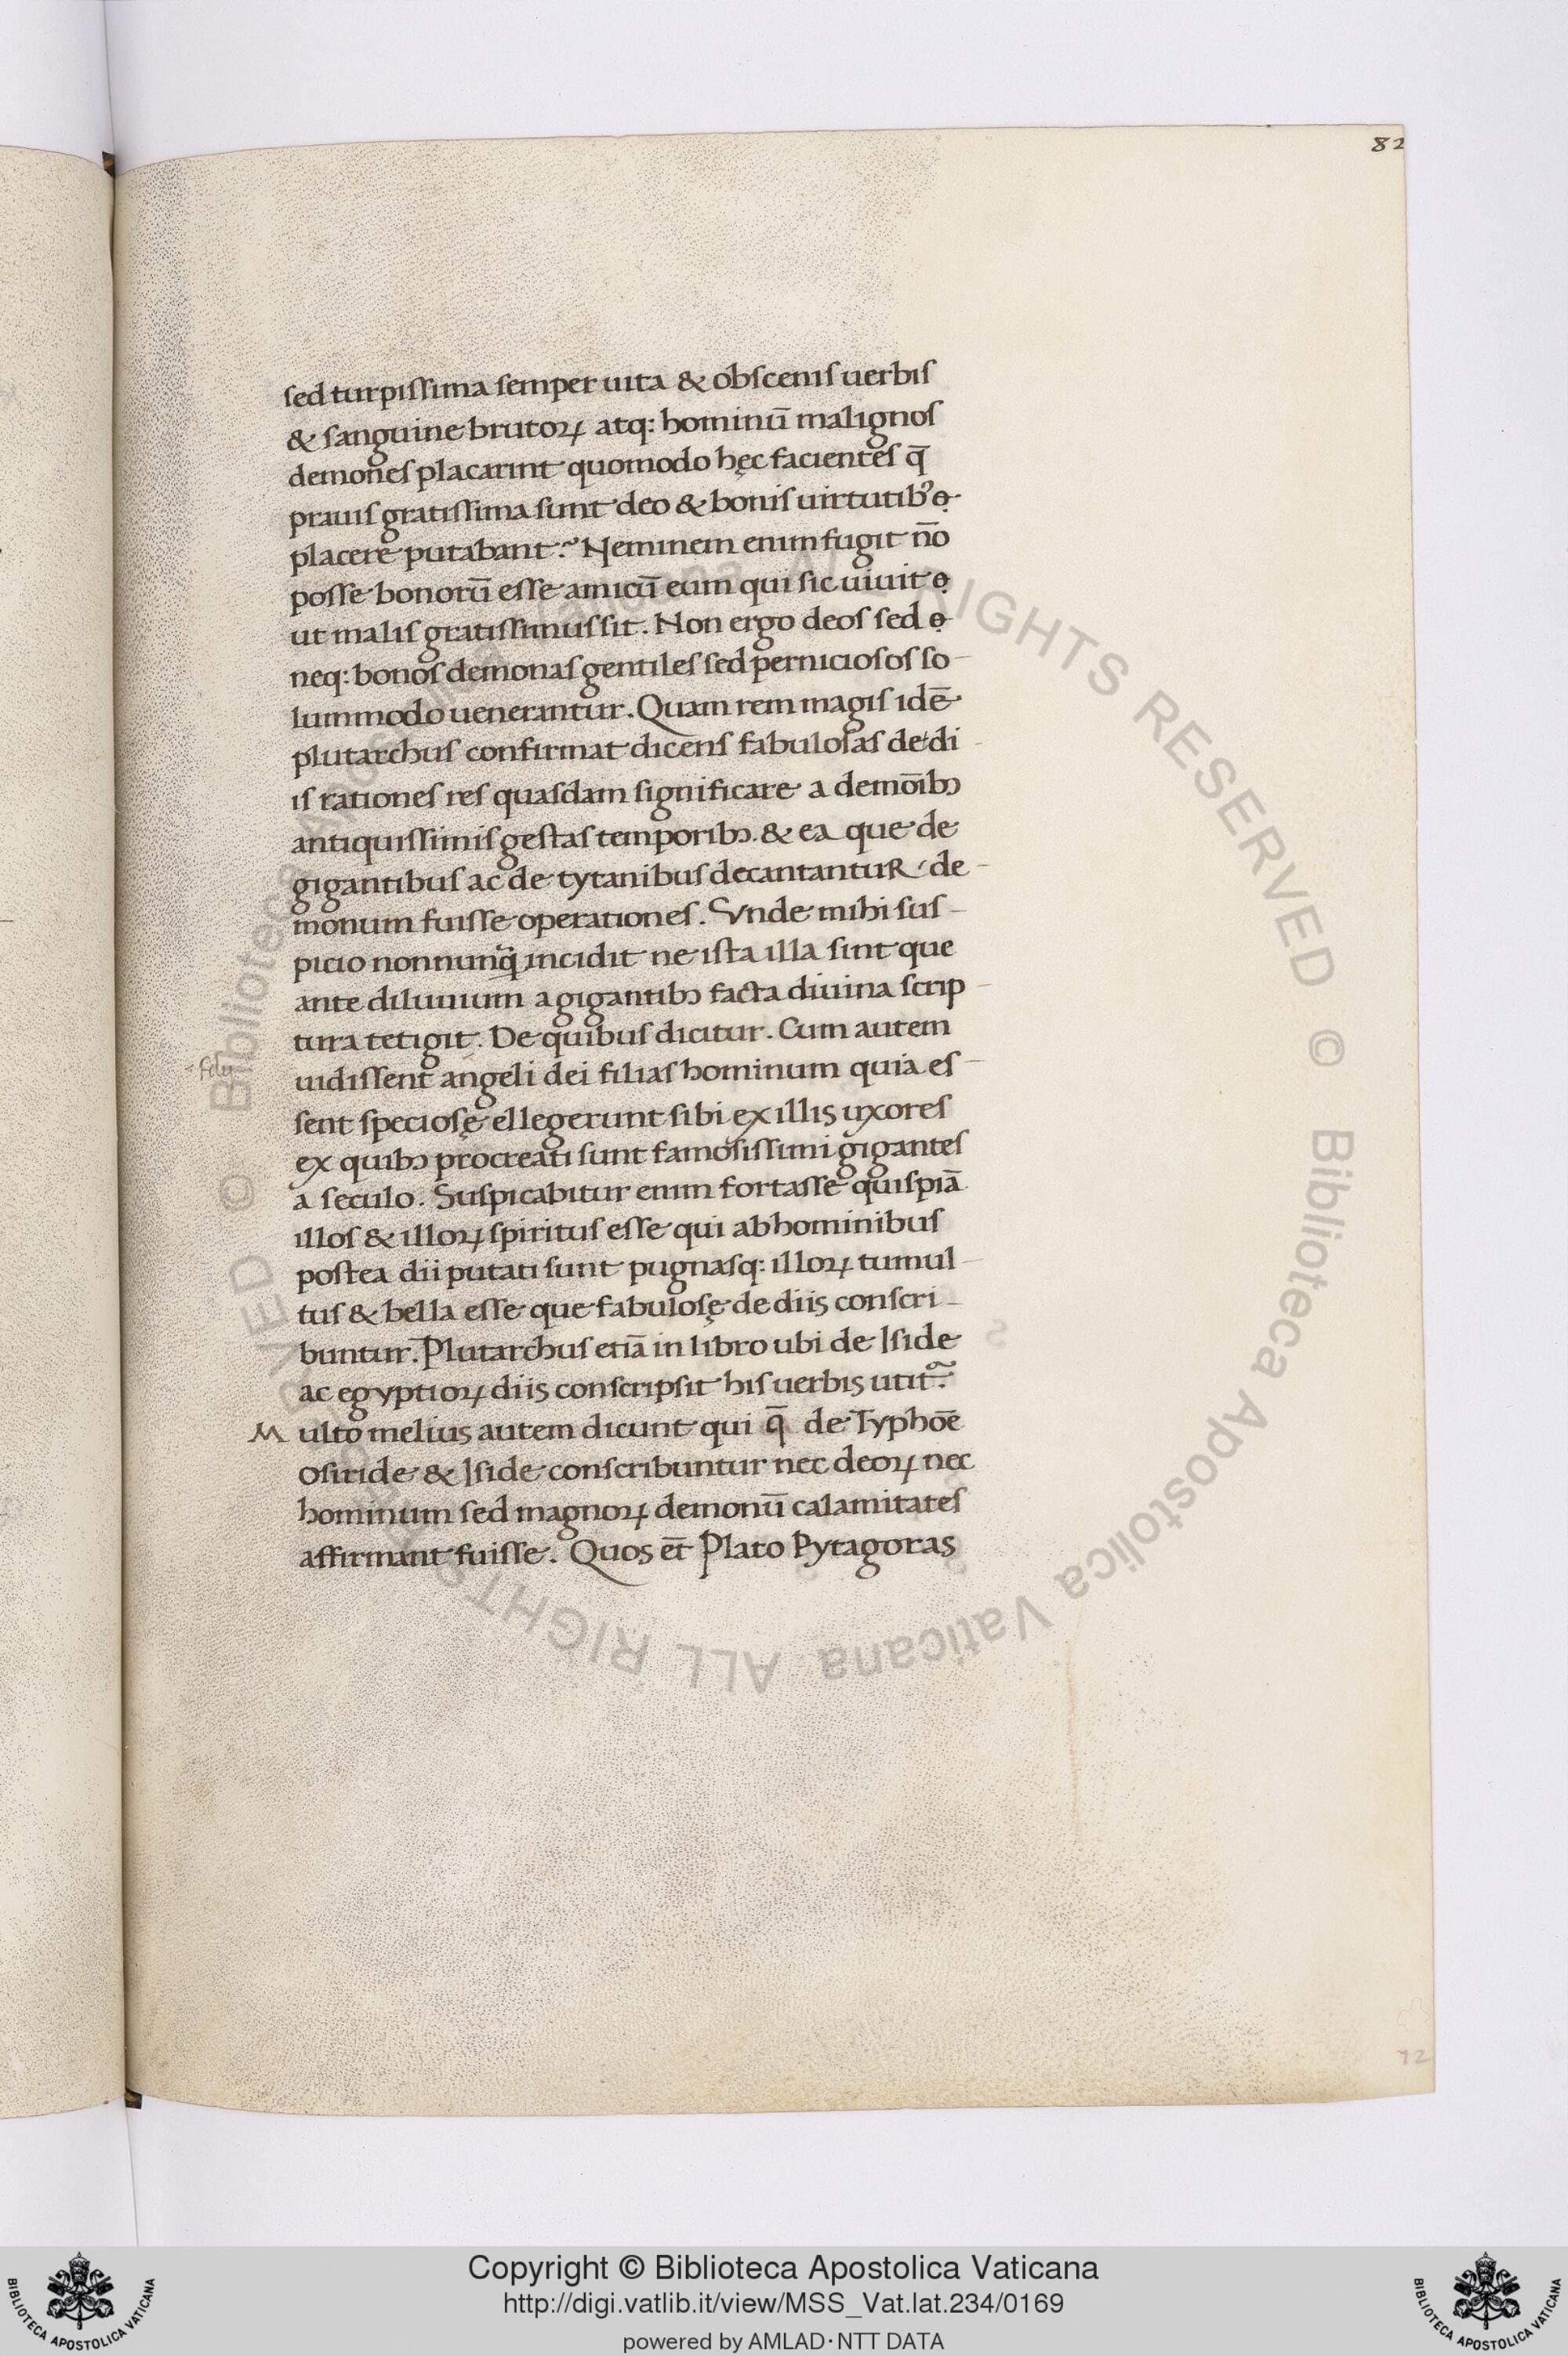 82
sed turpissima semper uita & obscenis uerbis
& sanguine brutoꝝ atq: hominū malignos
demones placarint quomodo hęc facientes q̄
prauis gratissima sunt deo & bonis uirtutibꝰ
placere putabant? Neminem enim fugit nō
posse bonorū esse amicū eum qui sic uiuit
ut malis gratissimus sit. Non ergo deos sed
neq: bonos demonas gentiles sed perniciosos so-
lummodo uenerantur. Quam rem magis idē
plutarchus confirmat dicens fabulosas de di-
is rationes res quasdam significare a demōibꝫ
antiquissimis gestas temporibꝫ. & ea que de
gigantibus ac de tytanibus decantantur de-
monum fuisse operationes. Vnde mihi sus-
picio nonnunq̄ incidit ne ista illa sint que
ante diluuium a gigantibꝫ facta diuina scrip-
tura tetigit. De quibus dicitur. Cum autem
filij
uidissent angeli dei filias hominum quia es-
sent speciosę ellegerunt sibi ex illis uxores
ex quibꝫ procreati sunt famosissimi gigantes
a seculo. Suspicabitur enim fortasse quispiā
illos & illoꝝ spiritus esse qui ab hominibus
postea dii putati sunt pugnasq: illoꝝ tumul-
tus & bella esse que fabulosę de diis conscri-
buntur. Plutarchus etiā in libro ubi de Iside
ac egyptioꝝ diis conscripsit his uerbis utit᷑.
Multo melius autem dicunt qui q̄ de Typhōe
Osiride & Iside conscribuntur nec deoꝝ nec
hominum sed magnoꝝ demonū calamitates
affirmant fuisse. Quos et̄ Plato Pytagoras
72
© Biblioteca Apostolica Vaticana ALL RIGHTS RESERVED
Copyright © Biblioteca Apostolica Vaticana
http://digi.vatlib.it/view/MSS_Vat.lat.234/0169
powered by AMLAD·NTT DATA
BIBLIOTECA APOSTOLICA VATICANA
BIBLIOTECA APOSTOLICA VATICANA